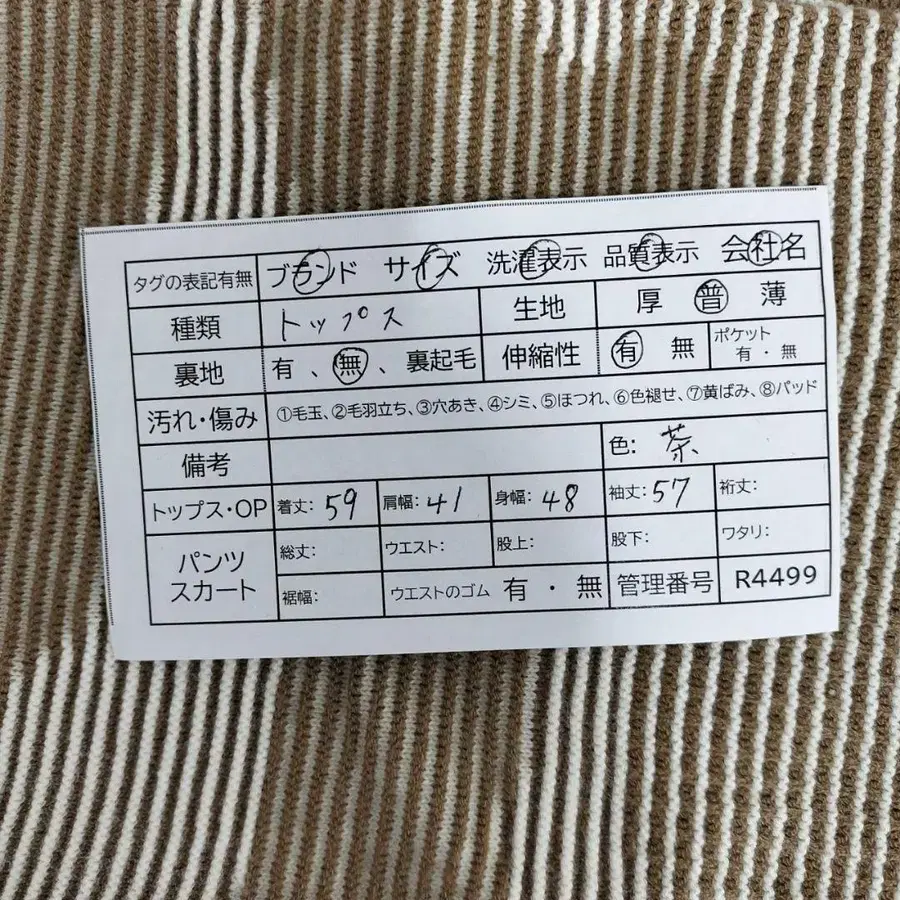 タグの表記有無 ブランド サイズ 洗濯表示 品質表示 会社名
種類 トップス 生地 厚 普 薄
裏地 有 、 無 、 裏起毛 伸縮性 有 無 ポケット 有 ・ 無
汚れ・傷み ①毛玉、②毛羽立ち、③穴あき、④シミ、⑤ほつれ、⑥色褪せ、⑦黄ばみ、⑧パッド
備考 色: 茶
トップス・OP 着丈: 59 肩幅: 41 身幅: 48 袖丈: 57 裄丈:
パンツ スカート 総丈: ウエスト: 股上: 股下: ワタリ:
裾幅: ウエストのゴム 有 ・ 無 管理番号 R4499